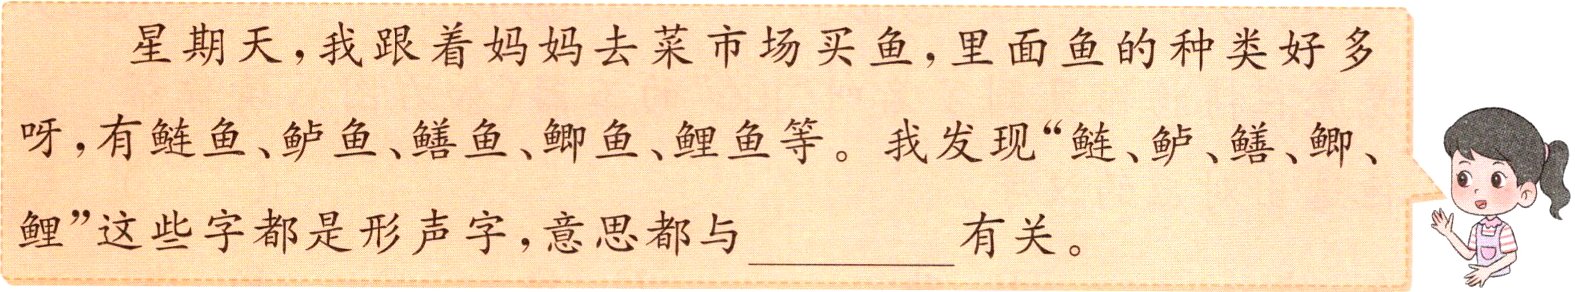 星期天,我跟着妈妈去菜市场买鱼,里面鱼的种类好多
呀,有鲢鱼、鲈鱼、鳝鱼、鲫鱼、鲤鱼等。我发现“鲢、鲈、鳝、鲫、
鲤”这些字都是形声字,意思都与________有关。